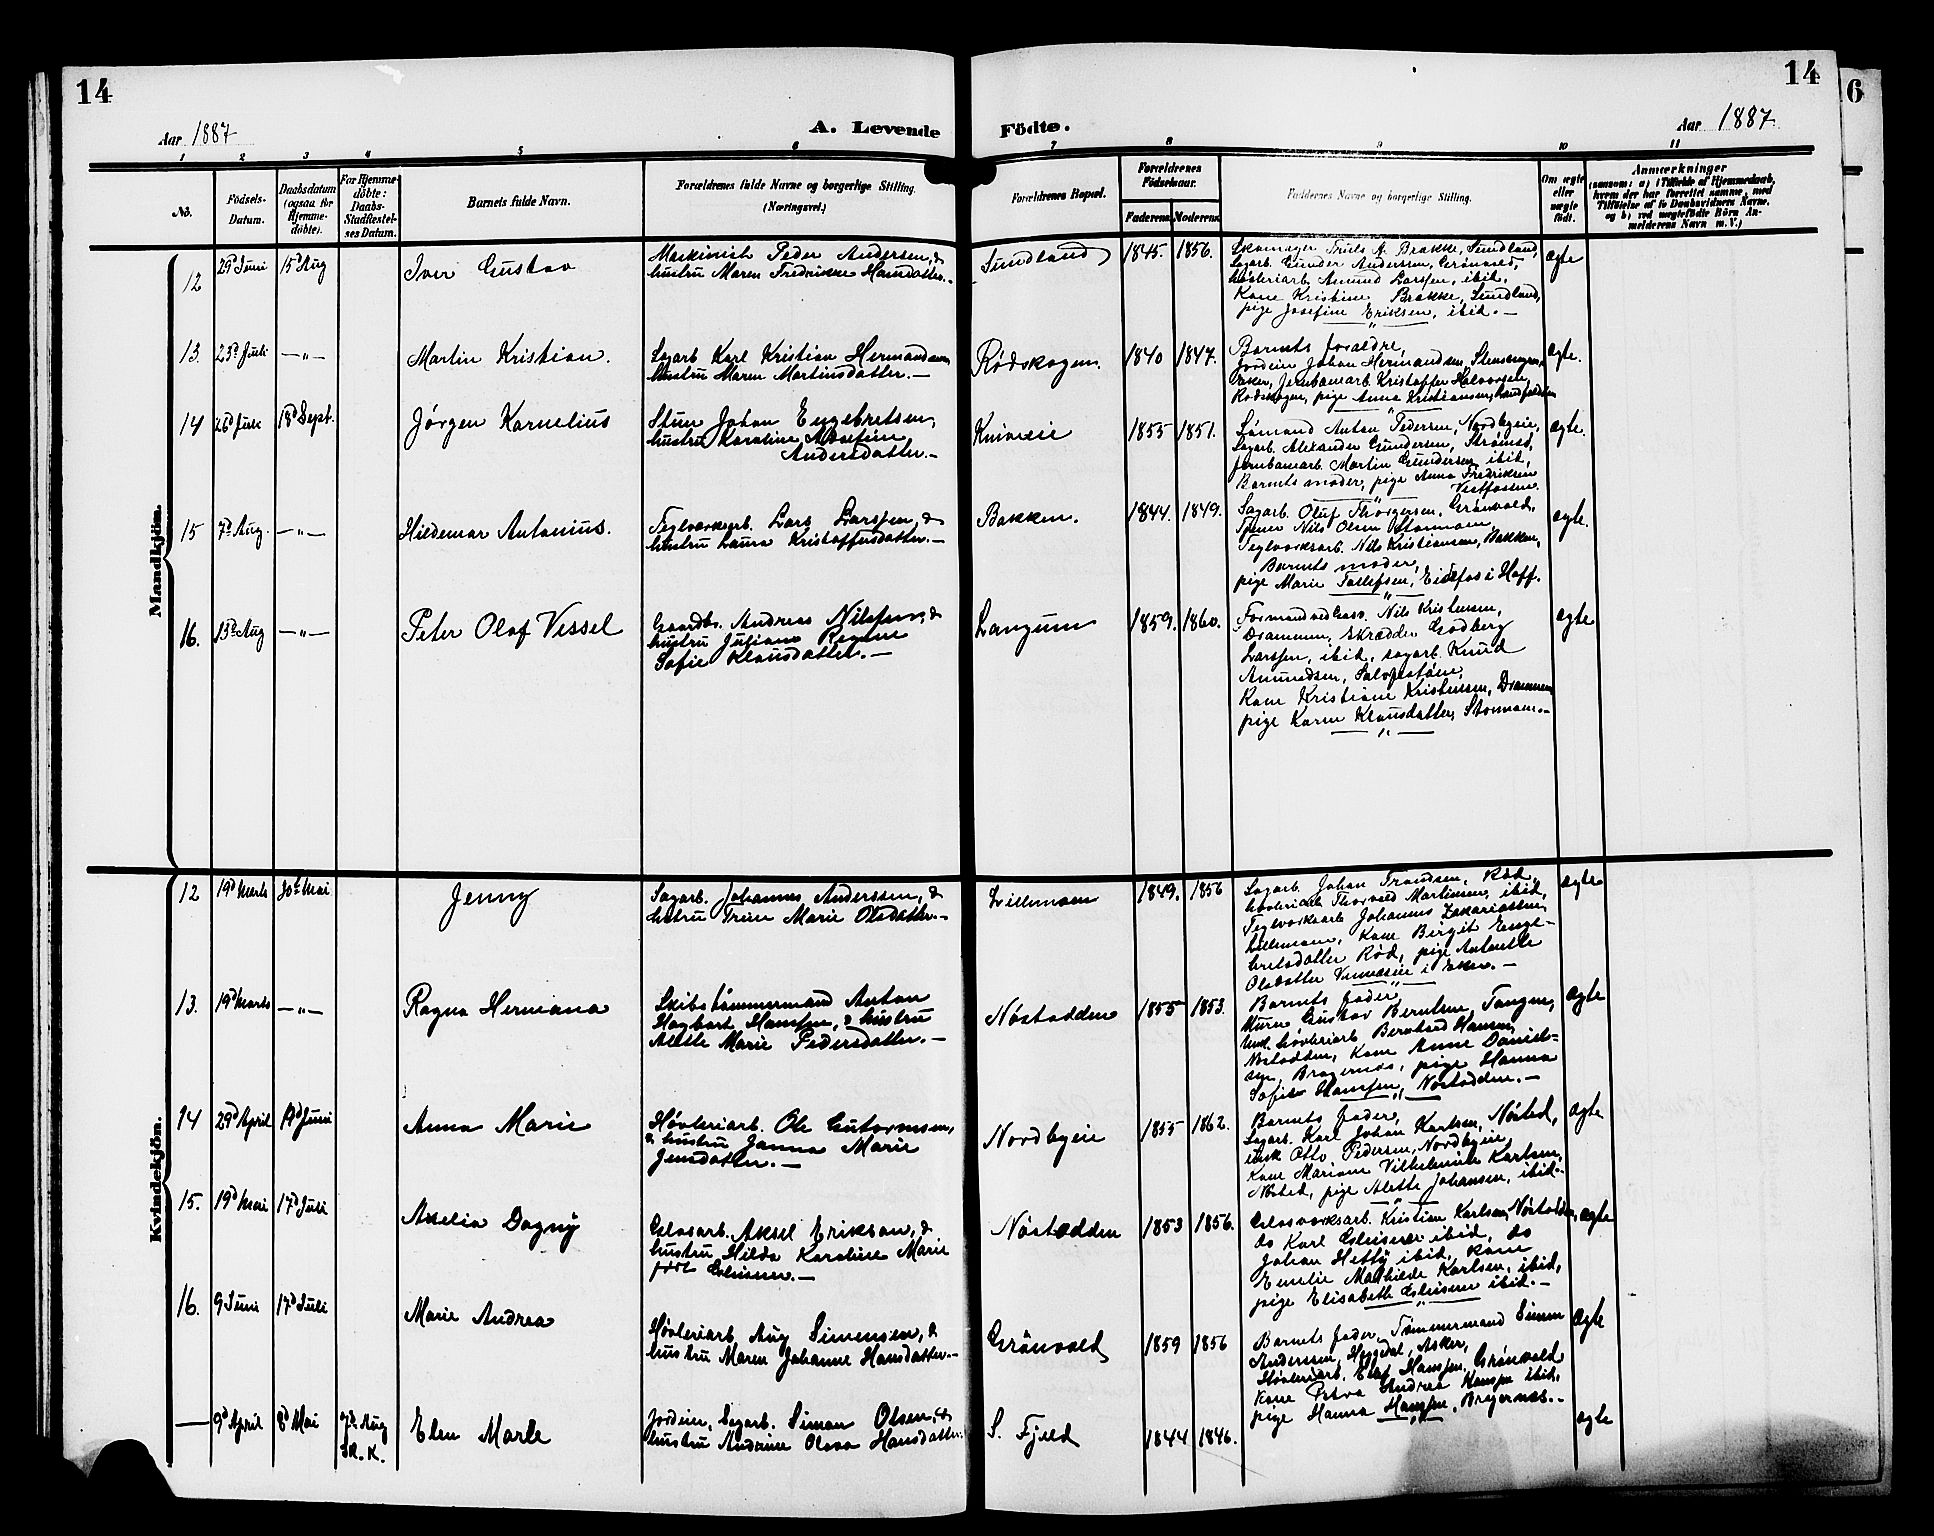 14
14
6
Aar 1887
A. Levende
Födte.
Aar 1887
1 2 3 4 5 6 7 8 9 10 11
No.
Födsels-
Datum.
Daabsdatum
(ogsaa for
Hjemme-
döbte).
For Hjemme-
döbte:
Daabs-
Stadfæstel-
ses Datum.
Barnets fulde Navn.
Forældrenes fulde Navne og borgerlige Stilling.
(Næringsvei.)
Forældrenes Bopæl.
Forældrenes
Födselsaar.
Faderens.
Moderens.
Faddernes Navne og borgerlige Stilling.
Om ægte
eller
uægte
födt.
Anmærkninger
(saasom: a) i Tilfælde af Hjemmedaab,
hvem der har forrettet samme, med
Tilföielse af to Daabsvidners Navne,
og b) ved uægtefödte Börn An-
melderens Navn m. V.)
Mandkjön.
12
29d Juni
15d Aug
Iver Gustav
Maskinist Peder Andersen, &
hustru Maren Fredrikke Hansdatter.—
Sundland
1845. 1856.
Skomager Truls A. Brakke, Sundland,
Sagarb. Gunder Andersen, Grönvold,
Høvleriarb. Amund Larssen, ibid,
Kone Kristine Brakke, Sundland,
pige Josefine Eriksen, ibid.—
ægte
13.
23d Juli
—"—
Martin Kristian.
Sagarb Karl Kristian Hermandsen
hustru Maren Martinsdatter.—
Rødskogen.
1840 1847.
Barnets forældre,
Jordein Johan Hermandsen, Stensengen,
Eker, Jernbanearb Kristoffer Halvorsen,
Rødskogen, pige Anna Kristiansen,
ægte.
14
26d Juli
18d Sept.
Jörgen Kornelius
Stuer Johan Engebretsen,
hustru Karoline Josefine
Andersdatter.—
Kniveie
1855 1851.
Sömand Anton Pedersen, Nordbyeie,
Sagarb. Alexander Gundersen, Strömsö,
Jernbanearb. Martin Gundersen ibid,
Barnets moder, pige Anna Fredriksen
Vestfossen.
ægte.
15
7d Aug.
—"—
Hildemar Antonius.
Teglværksarb. Lars Larssen, &
hustru Laura Kristoffersdatter.—
Bakken.
1844. 1849.
Sagarb. Oluf Thorgersen, Grönvold,
Nils Olsen Stormoen
Teglværksarb. Nils Kristiansen, Bakken,
Barnets moder,
pige Marie Tollefsen, Eidsfos i Hoff.
ægte.
16.
13d Aug
—"—
Peter Olaf Vessel
Gaardbr. Andreas Nilssen, &
hustru Juliane Regine
Sofie Klausdatter.—
Langum
1859. 1860.
Formand ved Gasv. Nils Kristensen,
Drammen, Skrædder Godberg
Larssen, ibid, sagarb. Knud
Amundsen,
Kone Kristiane Kristensen, Drammen
pige Karen Klausdatter, Stormoen.—
ægte
Kvindekjön.
12
19d Marts
30te Mai
Jenny
Sagarb. Johannes Anderssen, &
hustru Trine Marie Olsdatter.—
Lillemoen
1849. 1856
Sagarb. Johan Trondsen, Röd,
Høvleriarb Thorvald Martinsen, ibid,
Teglværksarb Johannes Zakariassen,
Lillemoen, Kone Birgit Enge-
bretsdatter Röd, pige Antonette
Olsdatter i Eker.—
ægte
13.
19d Marts
—"—
Ragna Hermana
Skibstömmermand Anton
Hagbart Hanssen, & hustru
Alette Marie Pedersdatter.—
Nöstodden
1855 1853.
Barnets fader,
Murer Gustav Berntsen, Tangen,
Unk. høvleriarb Bernhard Hansen
Nöstodden, Kone Anne Daniel-
sen, Bragernæs, pige Hanna
Sofie Hanssen, Nöstodden.—
ægte
14
29d April
19d Juni
Anna Marie
Høvleriarb. Ole Gutormsen,
& hustru Janna Marie
Jensdatter.—
Nordbyeie
1855 1862.
Barnets fader,
Sagarb. Karl Johan Karlsen, Nösted,
Unk Otto Pedersen, Nordbyeie,
Kone Mariane Vilhelmine Karlsen,
Nösted, pige Alette Johansen, ibid.—
ægte
15.
19d Mai
17d Juli
Akelia Dagny
Glasarb. Aksel Erikson, &
hustru Hilda Karoline Marie
född Gleisner.—
Nöstodden
1853 1856.
Glasværksarb. Kristian Karlsen Nöstodden,
do Karl Gleisner ibid, do
Johan Hetty ibid, kone
Emelie Mathilde Karlsen, ibid,
pige Elisabeth Gleisner ibid.—
ægte
16.
9 Juni
17d Juli
Marie Andrea
Høvleriarb. Aug Simensen, &
hustru Maren Johanne Hansdatter.—
Grönvold
1859 1856
Barnets fader, Tömmermand Simen
Anderssen, Heggedal, Asker,
Høvleriarb. Hanssen, Grönvold
Kone Petra Andrea Hanssen ibid,
pige Hanna Hanssen, Bragernæs.—
ægte
—
9d April
8d Mai
7d. Aug
Sk. K.
Elen Marle
Jordein, Sagarb. Simon Olsen, &
hustru Andrine Olava Hansdatter.
S. Fjeld
1844 1846.
ægte